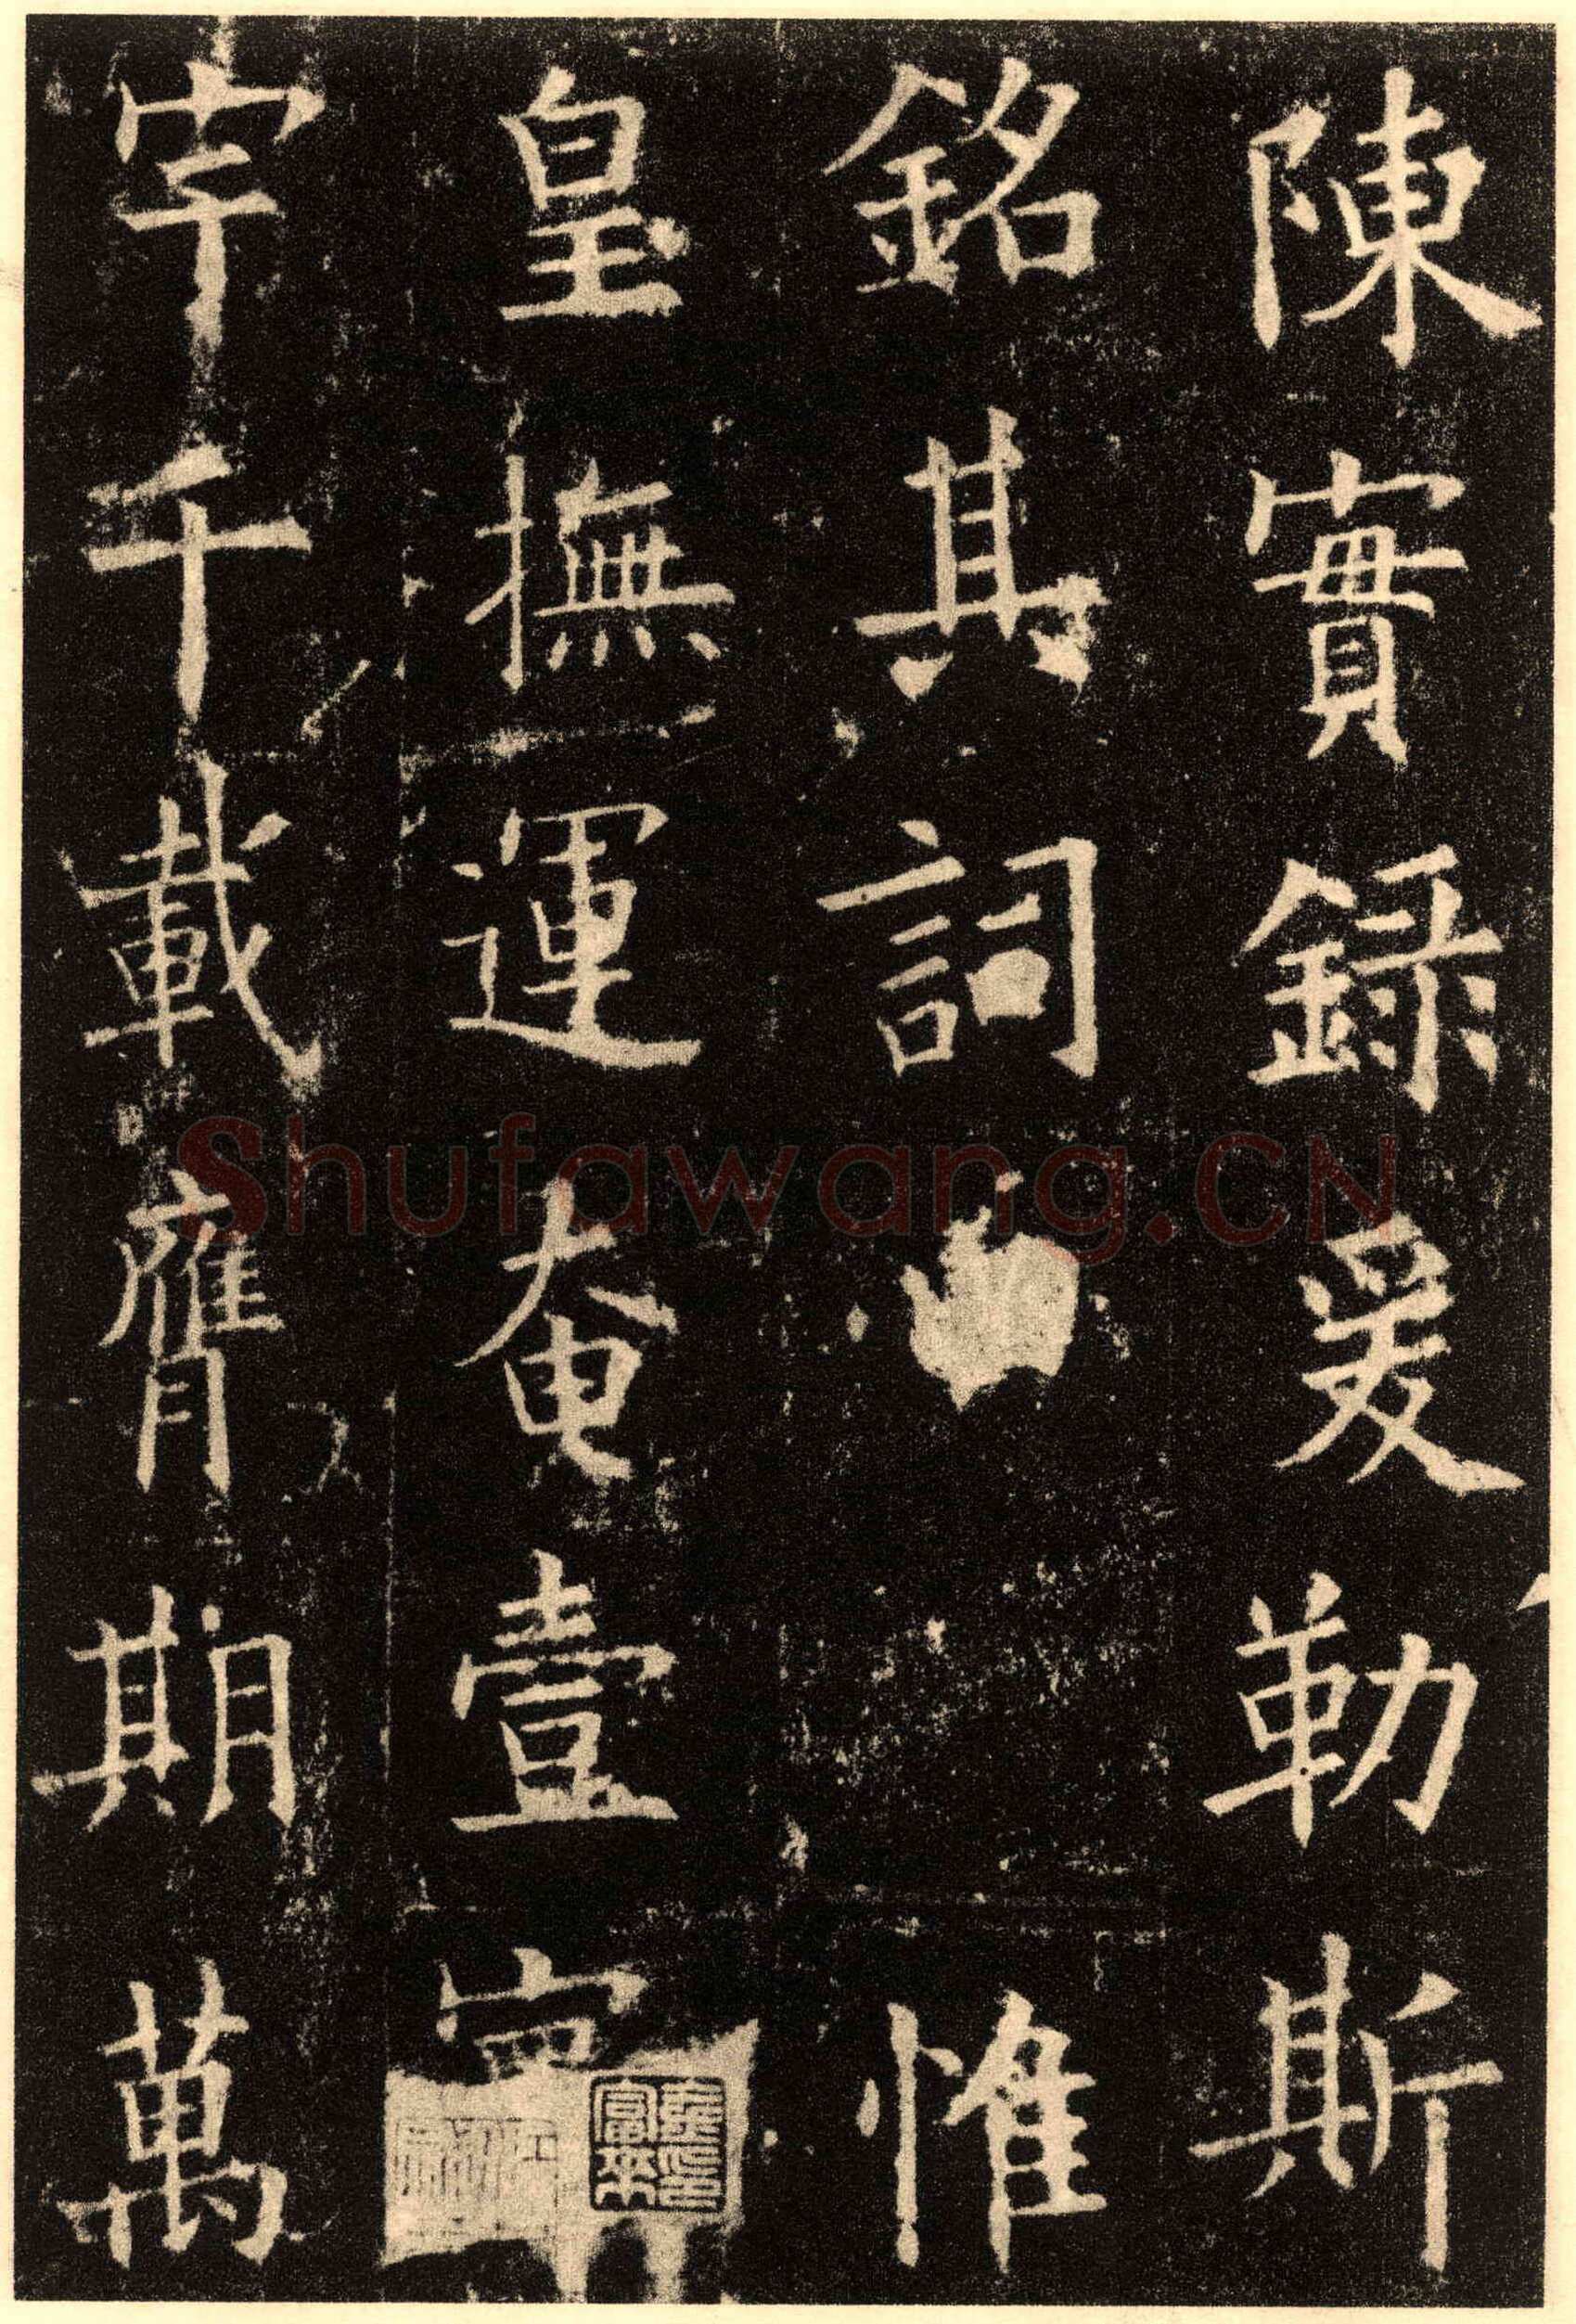 陳實錄爰勒斯
銘其詞惟
皇撫運奄壹
宇千載膺期萬
Shufawang.CN